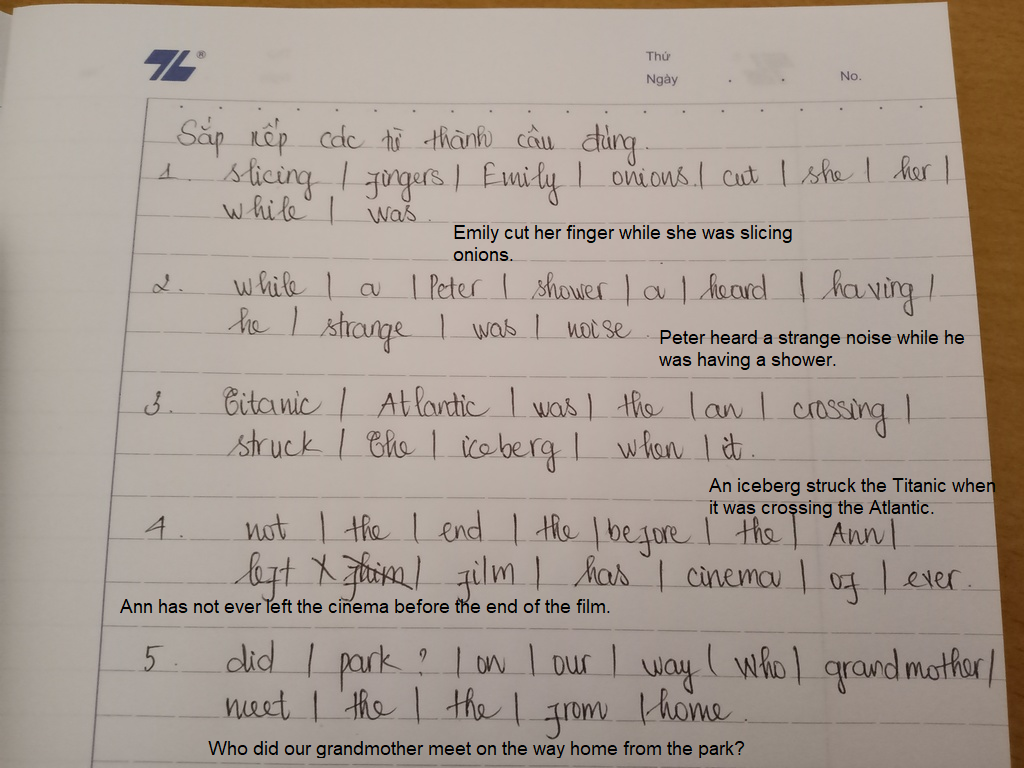 Thứ
Ngày . . No.
Sắp xếp các từ thành câu đúng.
1. slicing / fingers / Emily / onions. / cut / she / her /
while / was.
Emily cut her finger while she was slicing
onions.
2. while / a / Peter / shower / a / heard / having /
he / strange / was / noise.
Peter heard a strange noise while he
was having a shower.
3. Titanic / Atlantic / was / the / an / crossing /
struck / The / iceberg / when / it.
An iceberg struck the Titanic when
it was crossing the Atlantic.
4. not / the / end / the / before / the / Ann /
left / film / has / cinema / of / ever.
Ann has not ever left the cinema before the end of the film.
5. did / park? / on / our / way / Who / grandmother /
meet / the / the / from / home.
Who did our grandmother meet on the way home from the park?